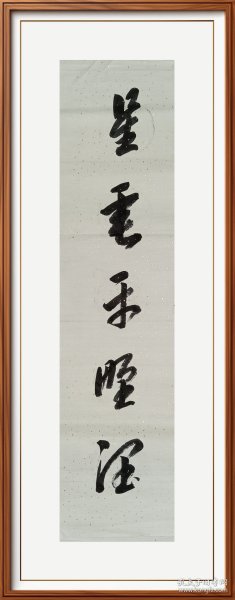 星垂平野阔
孔夫子旧书网